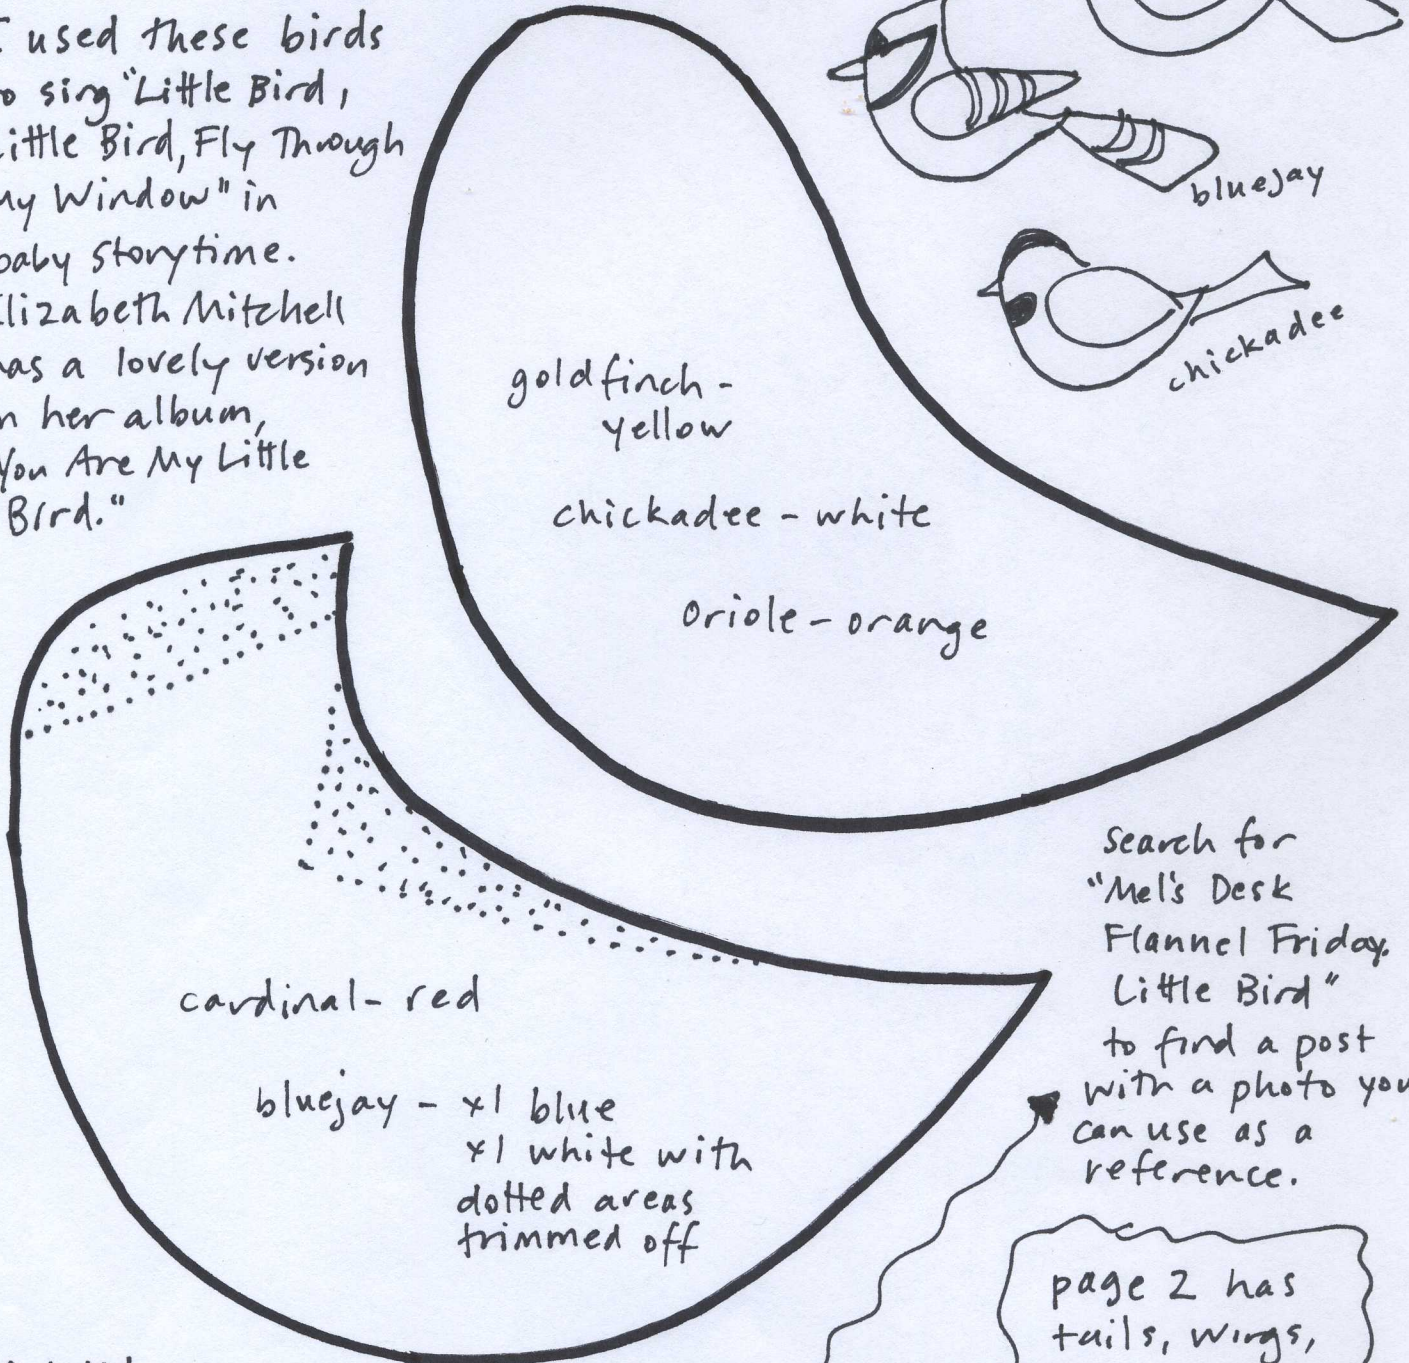 I used these birds
to sing "Little Bird,
Little Bird, Fly Through
My Window" in
baby storytime.
Elizabeth Mitchell
has a lovely version
on her album,
"You Are My Little
Bird."
bluejay
chickadee
goldfinch -
yellow
chickadee - white
oriole - orange
cardinal - red
bluejay - x1 blue
x1 white with
dotted areas
trimmed off
search for
"Mel's Desk
Flannel Friday.
Little Bird"
to find a post
with a photo you
can use as a
reference.
page 2 has
tails, wings,